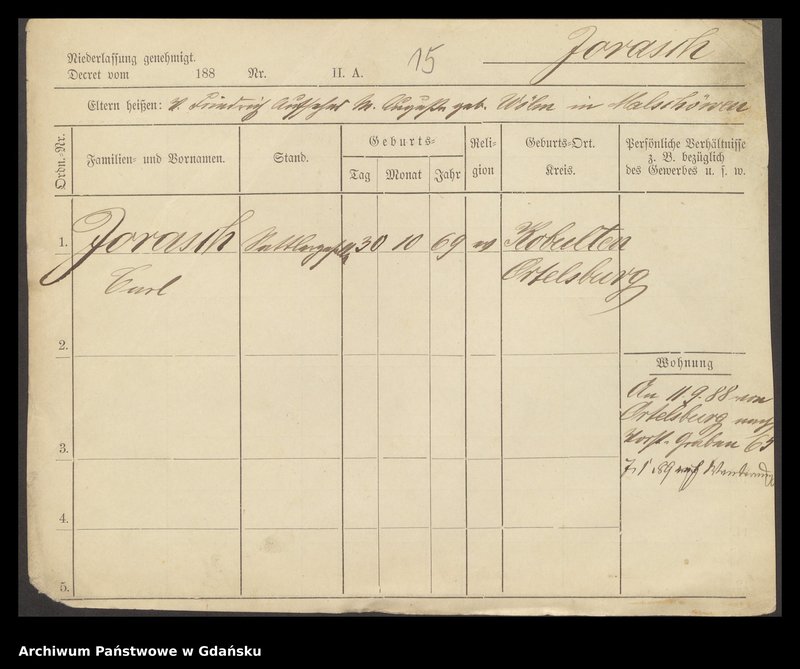 Jorasch
Niederlassung genehmigt.
Decret vom 188 Nr. II. A. 15
Eltern heißen: V. Friedrich M. Auguste geb. in Malschöwen
Ordn.-Nr.
Familien- und Vornamen.
Stand.
Geburts-
Tag Monat Jahr
Reli-
gion
Geburts-Ort.
Kreis.
Persönliche Verhältnisse
z. B. bezüglich
des Gewerbes u. s. w.
1. Jorasch 30 10 69 ev Kobulten
Carl Ortelsburg
2.
Wohnung
An 11.9.88 von
Ortelsburg nach
Vorst. Graben 65
7.1.89 auf
3.
4.
5.
Archiwum Państwowe w Gdańsku